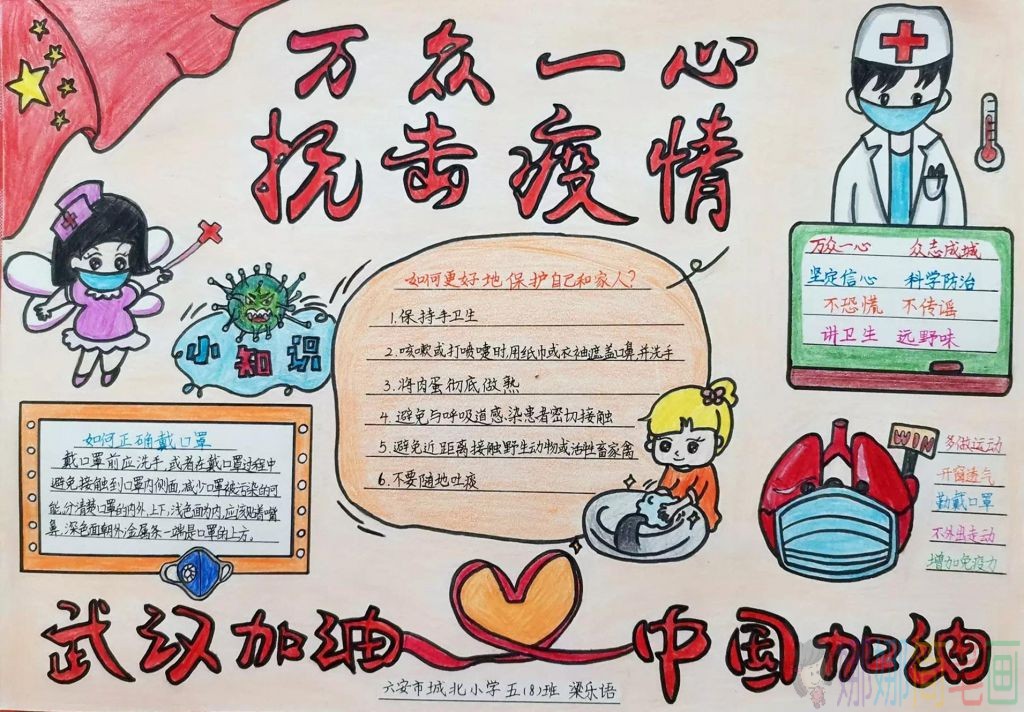 万众一心
抗击疫情
小知识
如何更好地保护自己和家人？
1.保持手卫生
2.咳嗽或打喷嚏时用纸巾或衣袖遮盖口鼻并洗手
3.将肉蛋彻底做熟
4.避免与呼吸道感染患者密切接触
5.避免近距离接触野生动物或活牲畜家禽
6.不要随地吐痰
万众一心 众志成城
坚定信心 科学防治
不恐慌 不传谣
讲卫生 远野味
如何正确戴口罩
戴口罩前应洗手，或者在戴口罩过程中
避免接触到口罩内侧面，减少口罩被污染的可
能，分清楚口罩的内外、上下，浅色面为内，应该贴着嘴
鼻，深色面朝外；金属条一端是口罩的上方。
WIN
多做运动
开窗透气
勤戴口罩
不外出走动
增加免疫力
武汉加油 中国加油
六安市城北小学五(8)班 梁乐语
娜娜简笔画